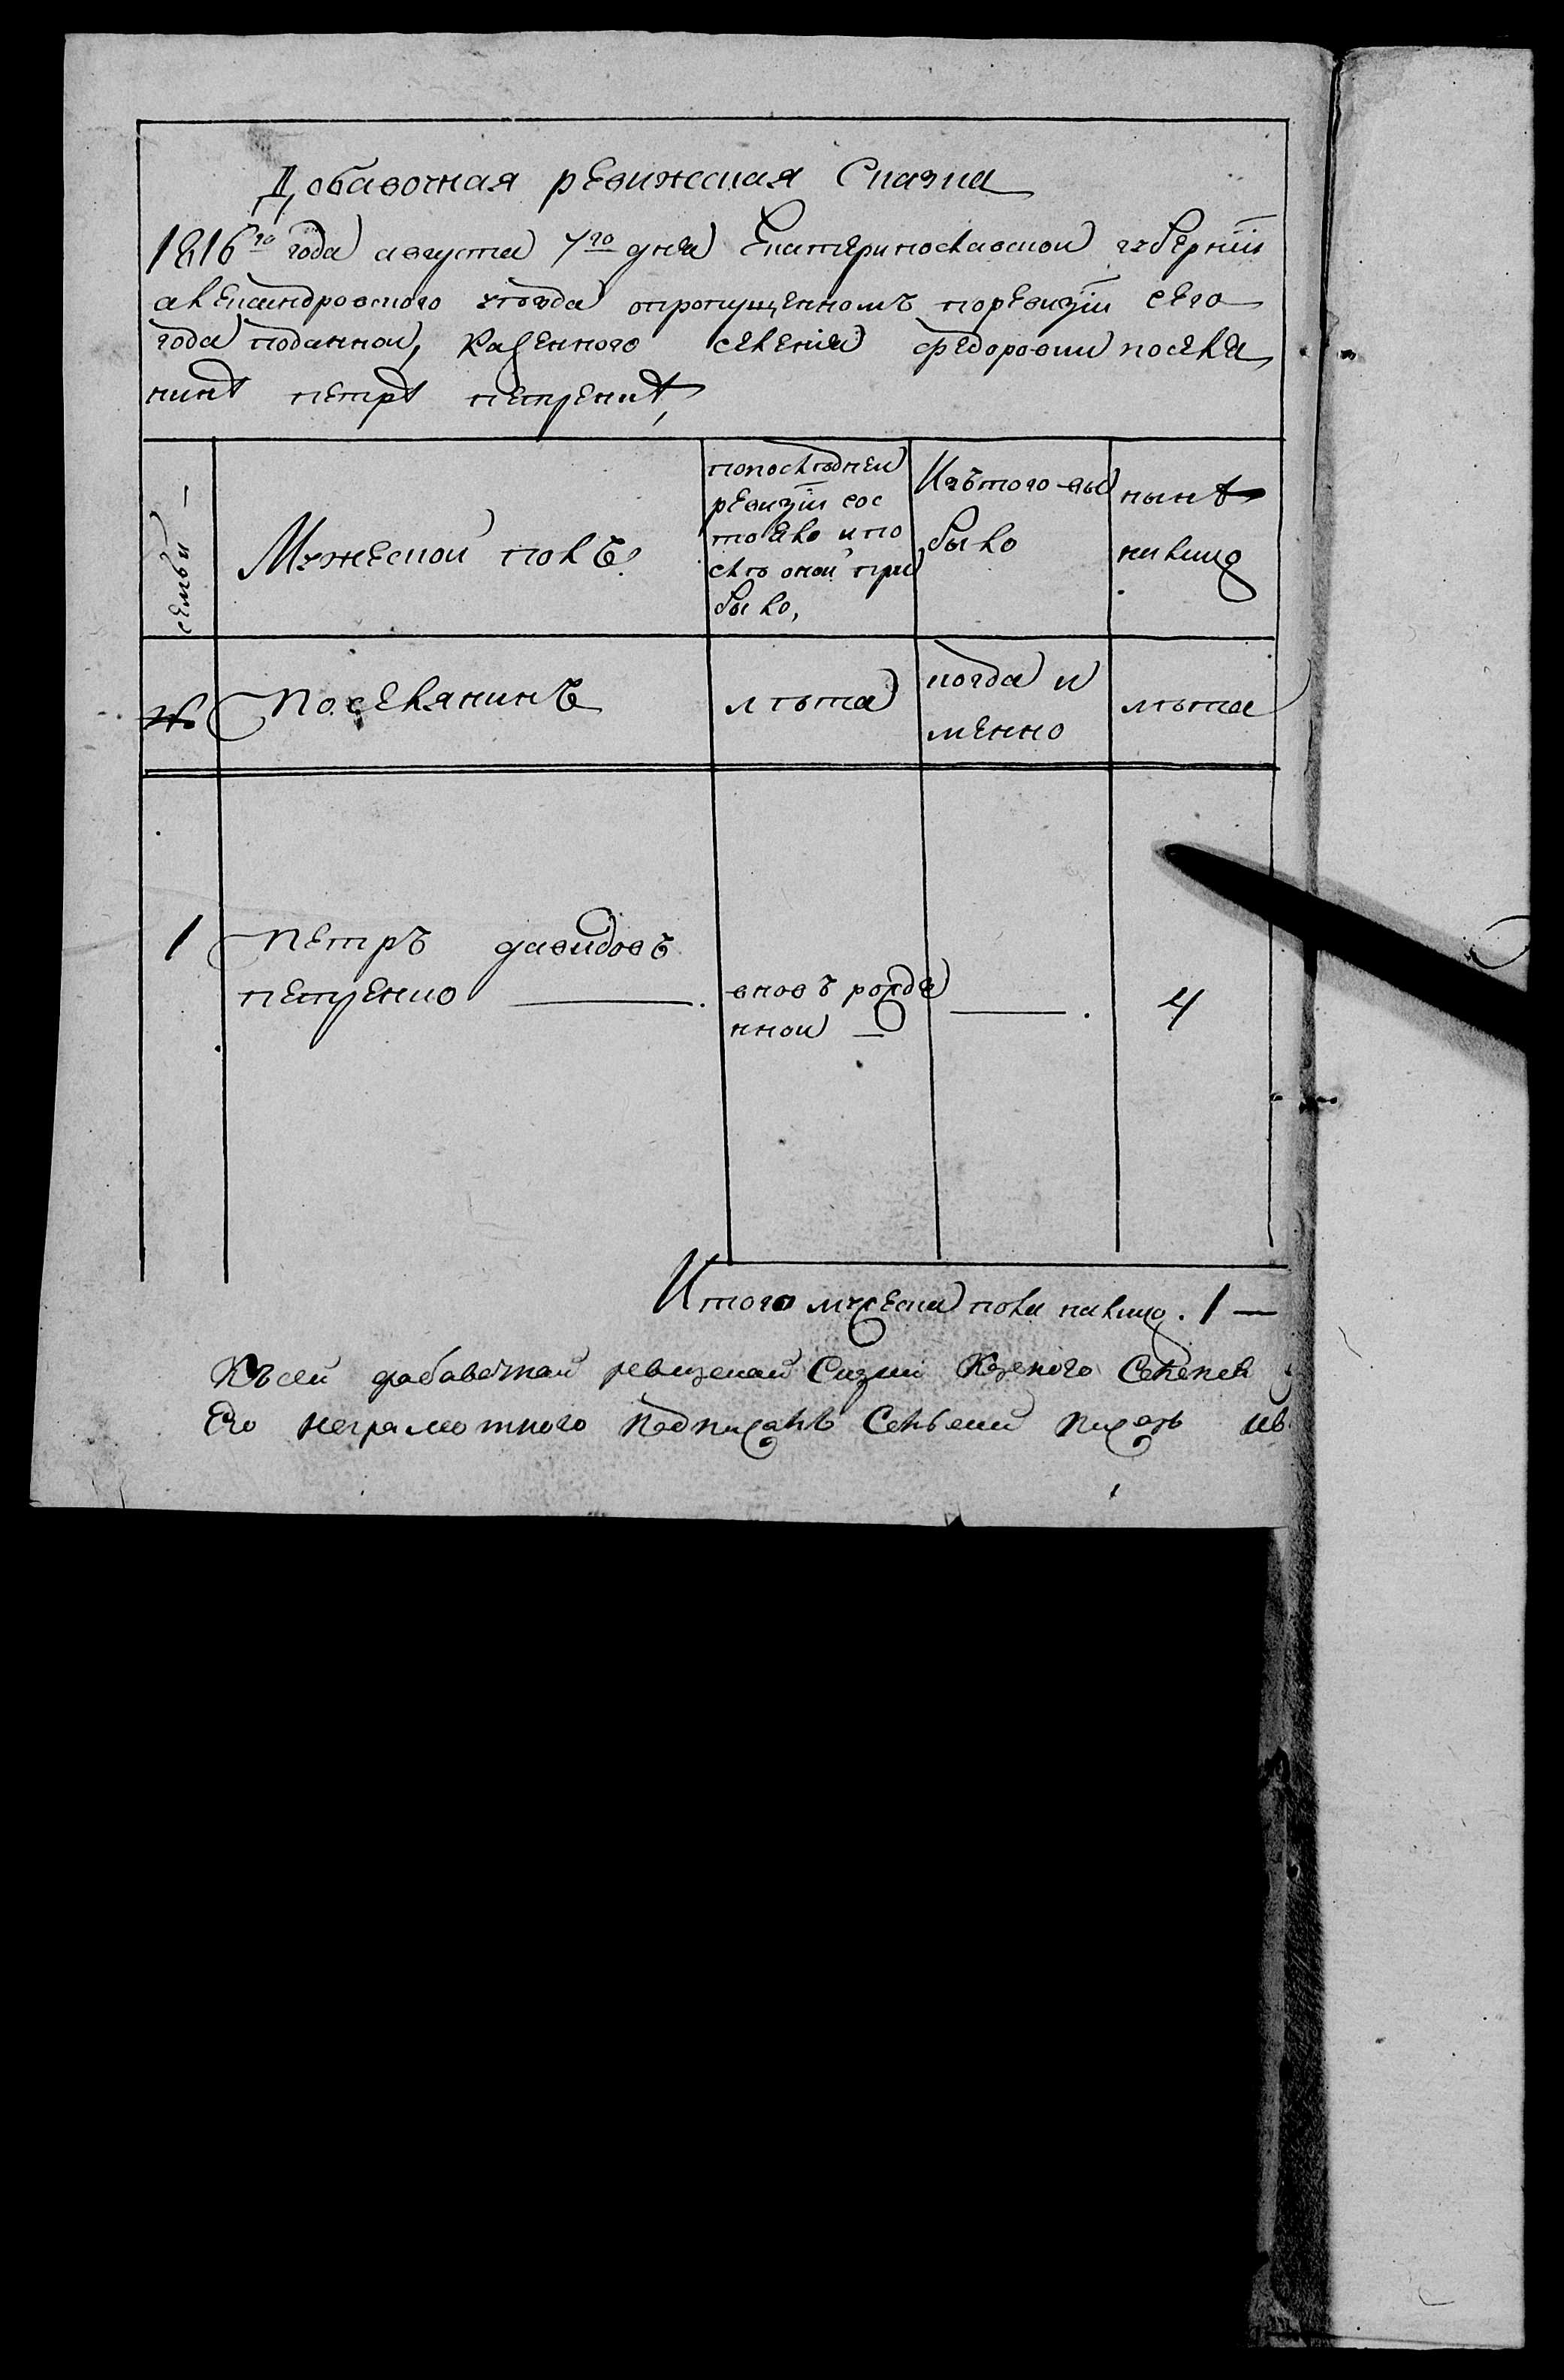 Добавочная ревижская Сказка
1816го года августа 7го дня Екатеринославской губернїи
александровского уѣзда опропущенномъ поревизїи сего
года поданной, Казенного селения федоровки поселя
нинѣ петрѣ петренкѣ,
семьи —
Мужеской полъ.
попослѣдней
ревизїи сос
тояло ипо
слѣ оной при
было,
Изътого вы
было
нынѣ
налицо
№
Поселянинъ
лѣта
когда и
менно
лѣта
1
Петръ давидовъ
петренко ———.
вновъ рожде
нной —
———.
4
Итого мужеска пола налицо. 1 —
Късей добавочной ревизской Сказки Казеного Селения
Его неграмотного Подписалъ Сельский писарь ив